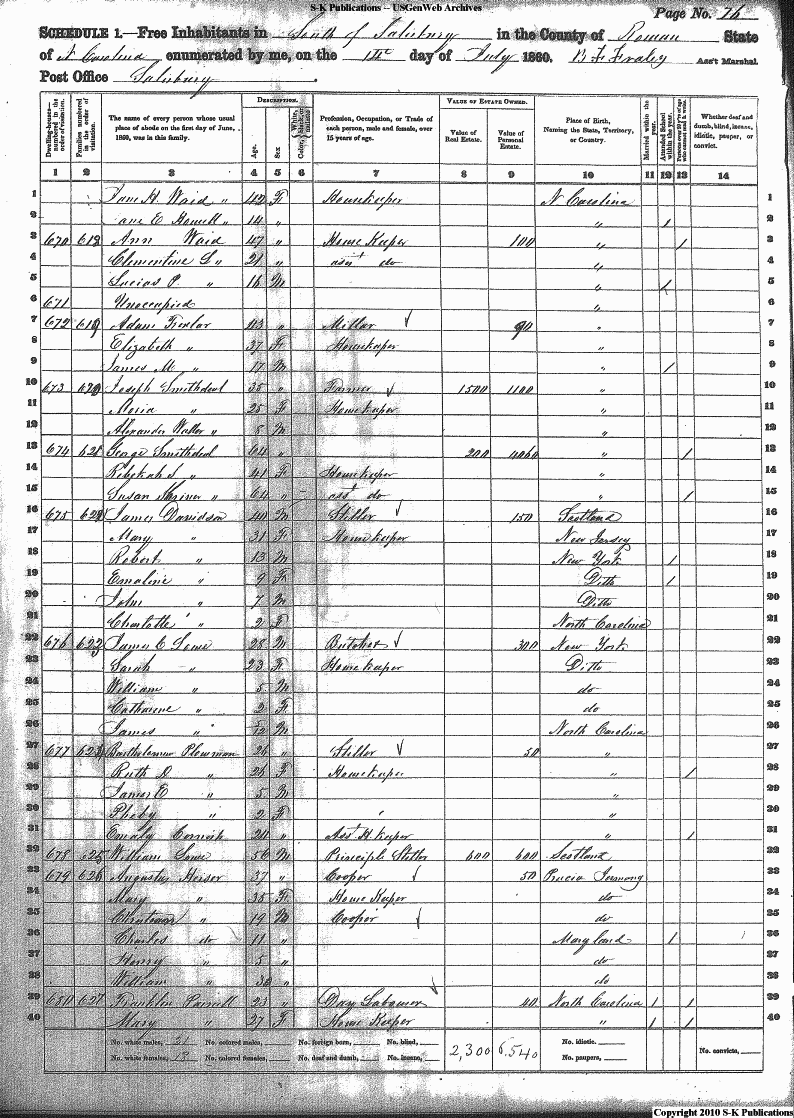 S-K Publications -- USGenWeb Archives
Page No. 76
SCHEDULE 1.—Free Inhabitants in South of Salisbury in the County of Rowan State
of N Carolina enumerated by me, on the day of July 1860. B F Fraley Ass't Marshal.
Post Office Salisbury
Dwelling-houses—numbered in the order of visitation. Families numbered in the order of visitation. The name of every person whose usual place of abode on the first day of June, 1860, was in this family. DESCRIPTION. Age. Sex. Color, White, black, or mulatto. Profession, Occupation, or Trade of each person, male and female, over 15 years of age. VALUE OF ESTATE OWNED. Value of Real Estate. Value of Personal Estate. Place of Birth, Naming the State, Territory, or Country. Married within the year. Attended School within the year. Persons over 20 y'rs of age who cannot read & write. Whether deaf and dumb, blind, insane, idiotic, pauper, or convict.
1 2 3 4 5 6 7 8 9 10 11 12 13 14
1 Jane H Waid " 42 F Housekeeper N Carolina 1
2 ane E Howell " 14 " " / 2
3 670 618 Ann Waid 47 " House Keeper 100 " / 3
4 Clementine L " 21 " asst do " 4
5 Lucias P. " 16 M " / 5
6 671 Unoccupied " 6
7 672 619 Adam 43 " Millar 90 " 7
8 Elizabeth " 37 F Housekeeper " 8
9 James M " 17 M " / 9
10 673 620 Joseph Smithdeal 35 " Farmer 1500 1100 " 10
11 Moria " 25 F Housekeeper " 11
12 Alexander Waller " 8 M " 12
13 674 621 George Smithdeal 64 " 200 4060 " / 13
14 Rebekah S " 41 F Housekeeper " 14
15 Susan " 64 " asst do " / 15
16 675 622 James Davidson 40 M Stiller 150 Scotland 16
17 Mary " 31 F Housekeeper New Jersey 17
18 Robert " 13 M New York / 18
19 Emaline " 9 F Ditto / 19
20 John " 7 M Ditto 20
21 Charlotte " 2 F North Carolina 21
22 676 623 James C Lowe 28 M Butcher 300 New York 22
23 Sarah " 23 F Housekeeper Ditto 23
24 William " 5 M do 24
25 Catharine " 2 F do 25
26 James " 5/12 M North Carolina 26
27 677 624 Bartholemew Plowman 26 " Stiller 50 " 27
28 Ruth D " 26 F Housekeeper " / 28
29 James E " 5 M " 29
30 Pheby " 2 F " 30
31 Emaly Cornish 20 " Asst H keeper " / 31
32 678 625 William Lowe 56 M Principle Stiller 600 600 Scotland 32
33 679 626 Augustus Heiser 37 " Cooper 50 Prucia Jermony 33
34 Mary " 35 F House Keeper do 34
35 " 19 M Cooper do 35
36 Charles do 11 " Maryland / 36
37 Henry " 5 " do 37
38 William " " do 38
39 680 627 Franklin Parnell 23 " Day Labourer 40 North Carolina / / 39
40 Mary " 27 F House Keeper " / / 40
No. white males, 21 No. colored males, No. foreign born, No. blind, 2,300 6.540 No. idiotic.
No. white females, No. colored females, No. deaf and dumb, No. insane, No. paupers, No. convicts,
Copyright 2010 S-K Publications